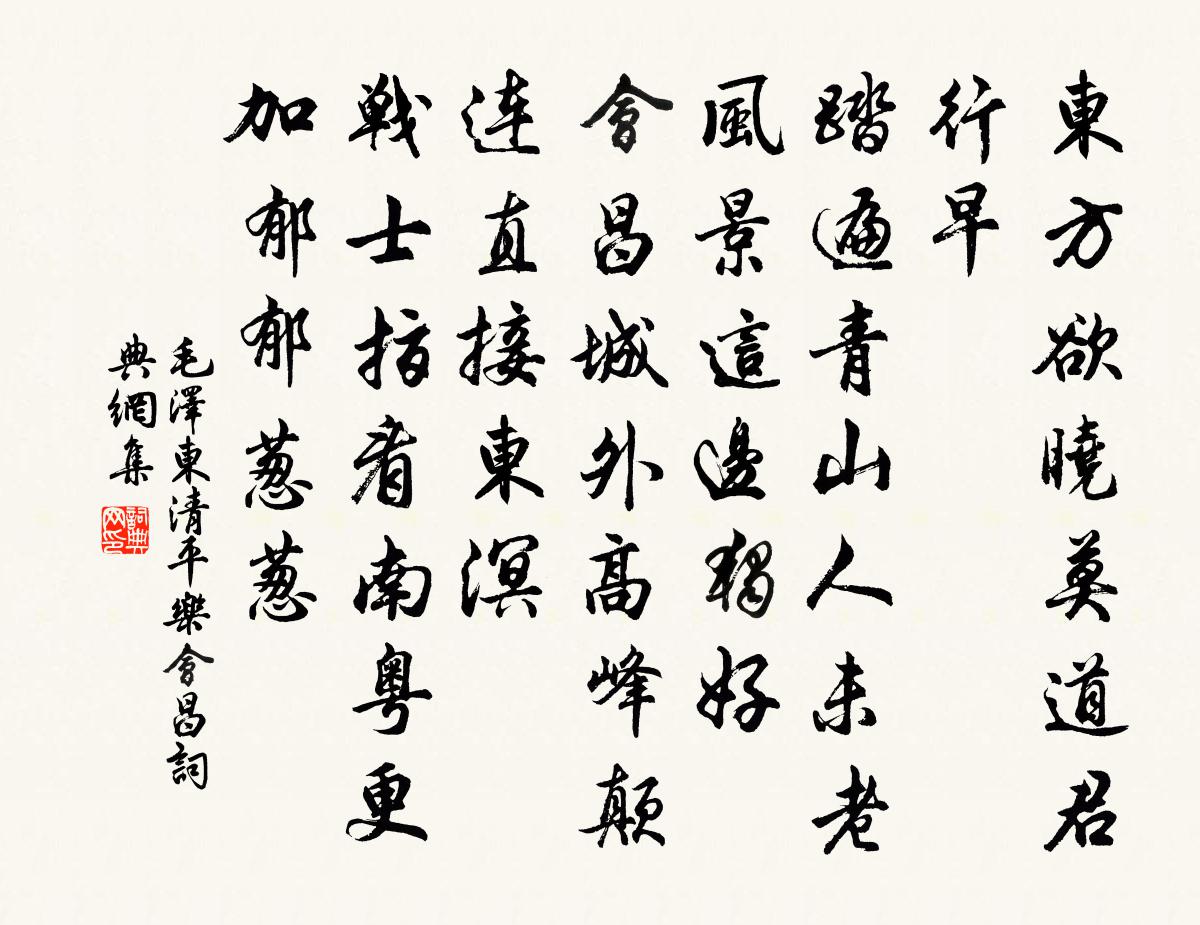 東方欲曉莫道君
行早
踏遍青山人未老
風景這邊獨好
會昌城外高峰顛
連直接東溟
戰士指看南粵更
加郁郁葱葱
毛澤東清平樂會昌詞
典網集
詞典
网印